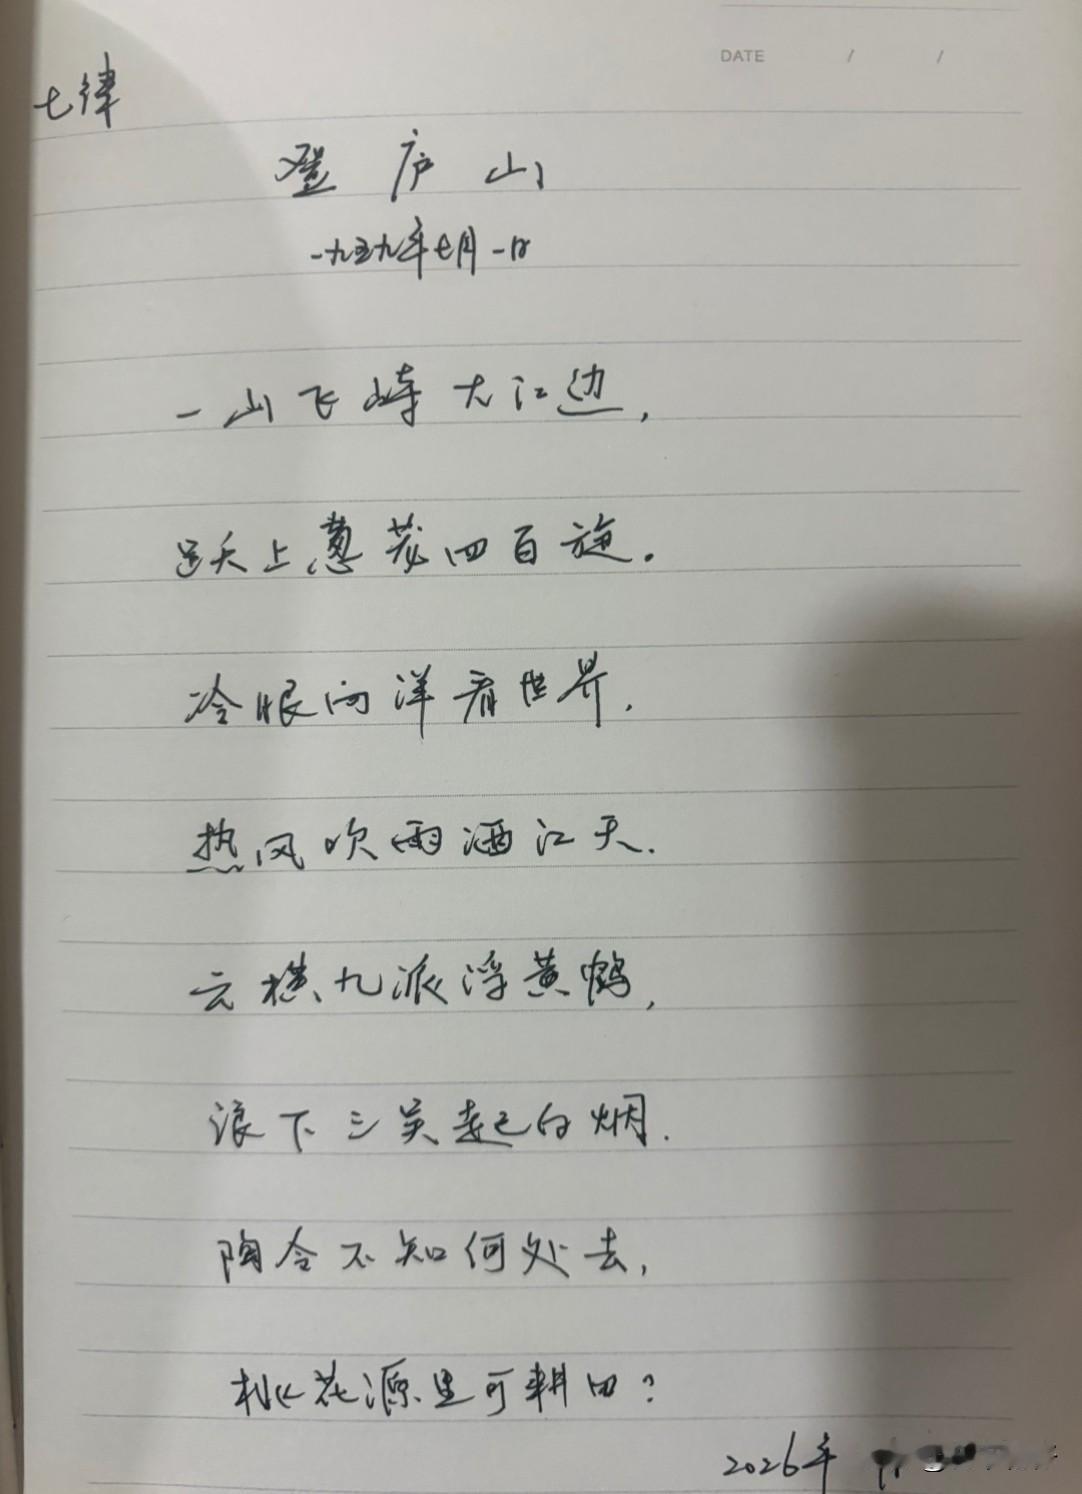 DATE / /
七律
登庐山
一九五九年七月一日
一山飞峙大江边,
跃上葱茏四百旋。
冷眼向洋看世界,
热风吹雨洒江天.
云横九派浮黄鹤,
浪下三吴起白烟.
陶令不知何处去,
桃花源里可耕田?
2026年